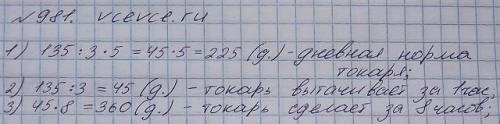 №981. vcevce.ru
1) 135 : 3 · 5 = 45 · 5 = 225 (д.) - дневная норма
токаря;
2) 135 : 3 = 45 (д.) - токарь вытачивает за 1 час;
3) 45 · 8 = 360 (д.) - токарь сделает за 8 часов;